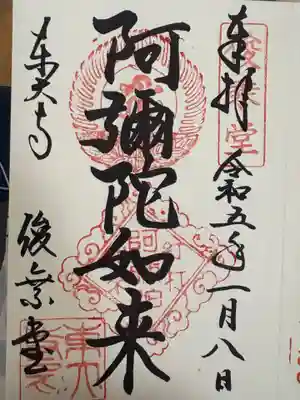 奉拝 令和五年一月八日
俊乗堂
阿彌陀如来
東大寺 俊乗堂